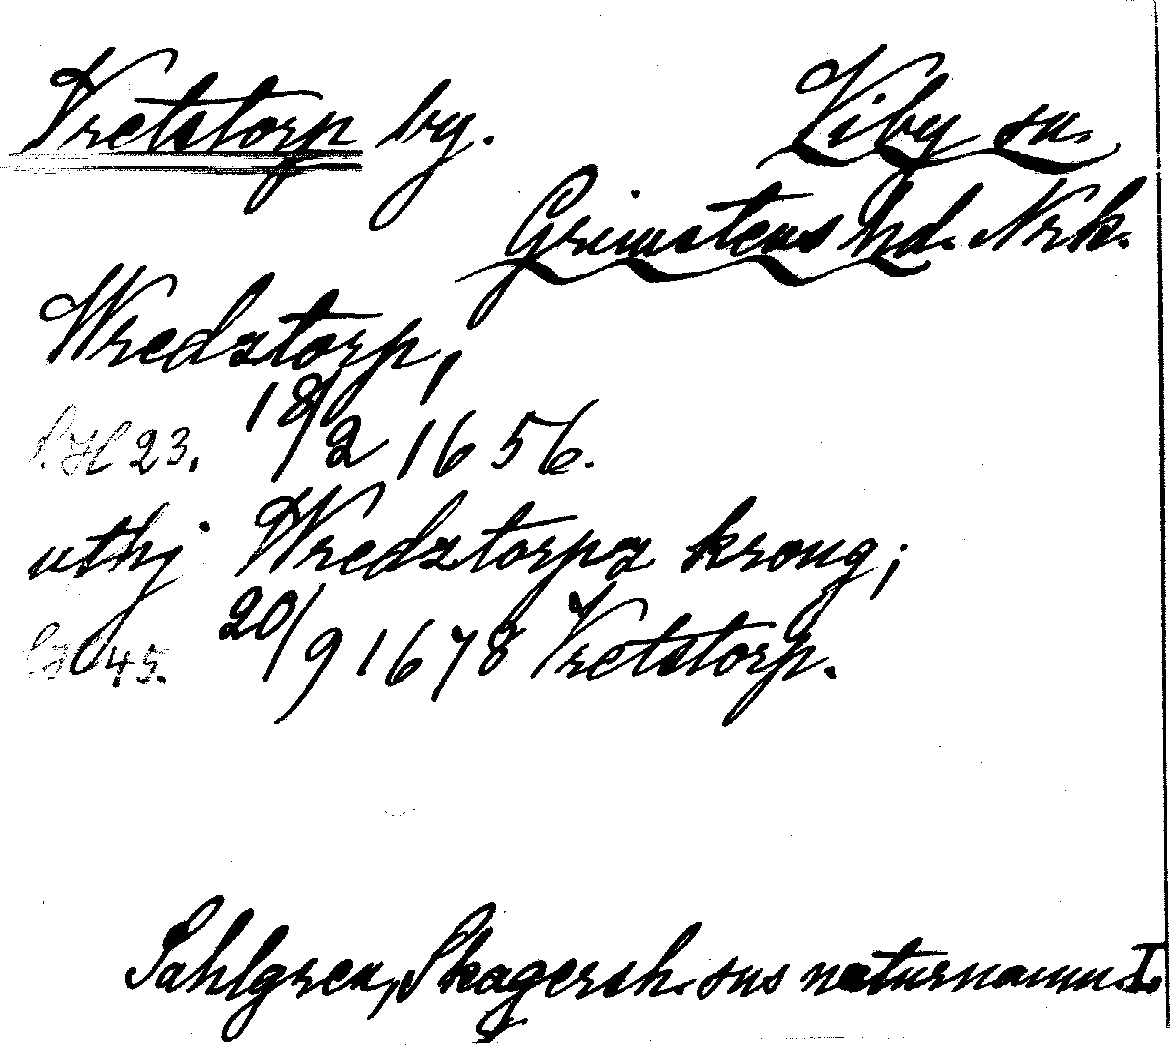 Vretstorp by. Viby sn.
Grimstens hd. Nrk.
Wredztorp,
23. 18/2 1656.
uthj Wredztorpz kroug;
45. 20/9 1678 Vretstorp.
Sahlgren, Skagersh. sns naturnamn I.